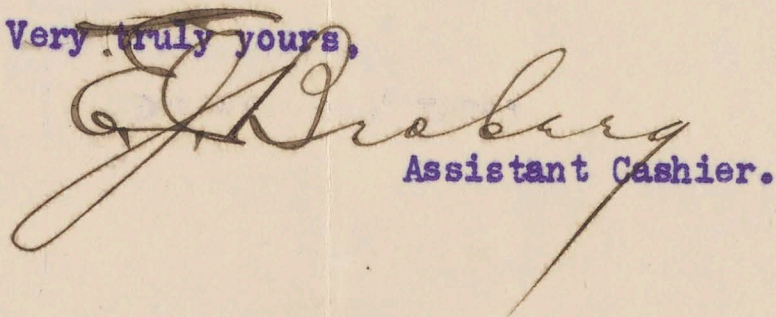 Very truly yours,
E. J. Broberg
Assistant Cashier.